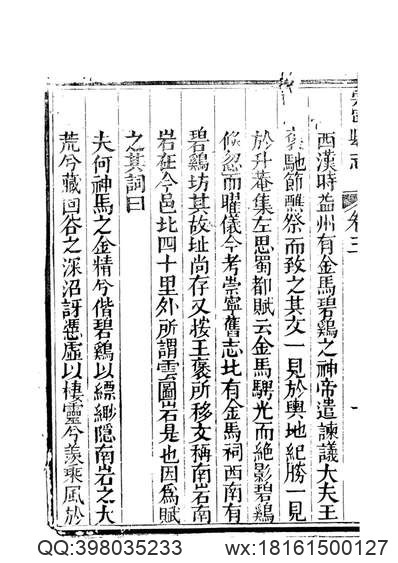 崇寧縣志 卷三 一
西漢時益州有金馬碧鷄之神帝遣諫議大夫王
褒馳節醮祭而致之其文一見於輿地紀勝一見
於升菴集左思蜀都賦云金馬騁光而絕影碧鷄
倏忽而曜儀今考崇寧舊志北有金馬祠西南有
碧鷄坊其故址尚存又按王褒所移文稱南岩南
岩在今邑北四十里外所謂雲圖岩是也因爲賦
之其詞曰
夫何神馬之金精兮偕碧鷄以縹緲隱南岩之大
荒兮藏回谷之深沼訝憑虛以棲靈兮羨乘風於
QQ:398035233
wx:18161500127